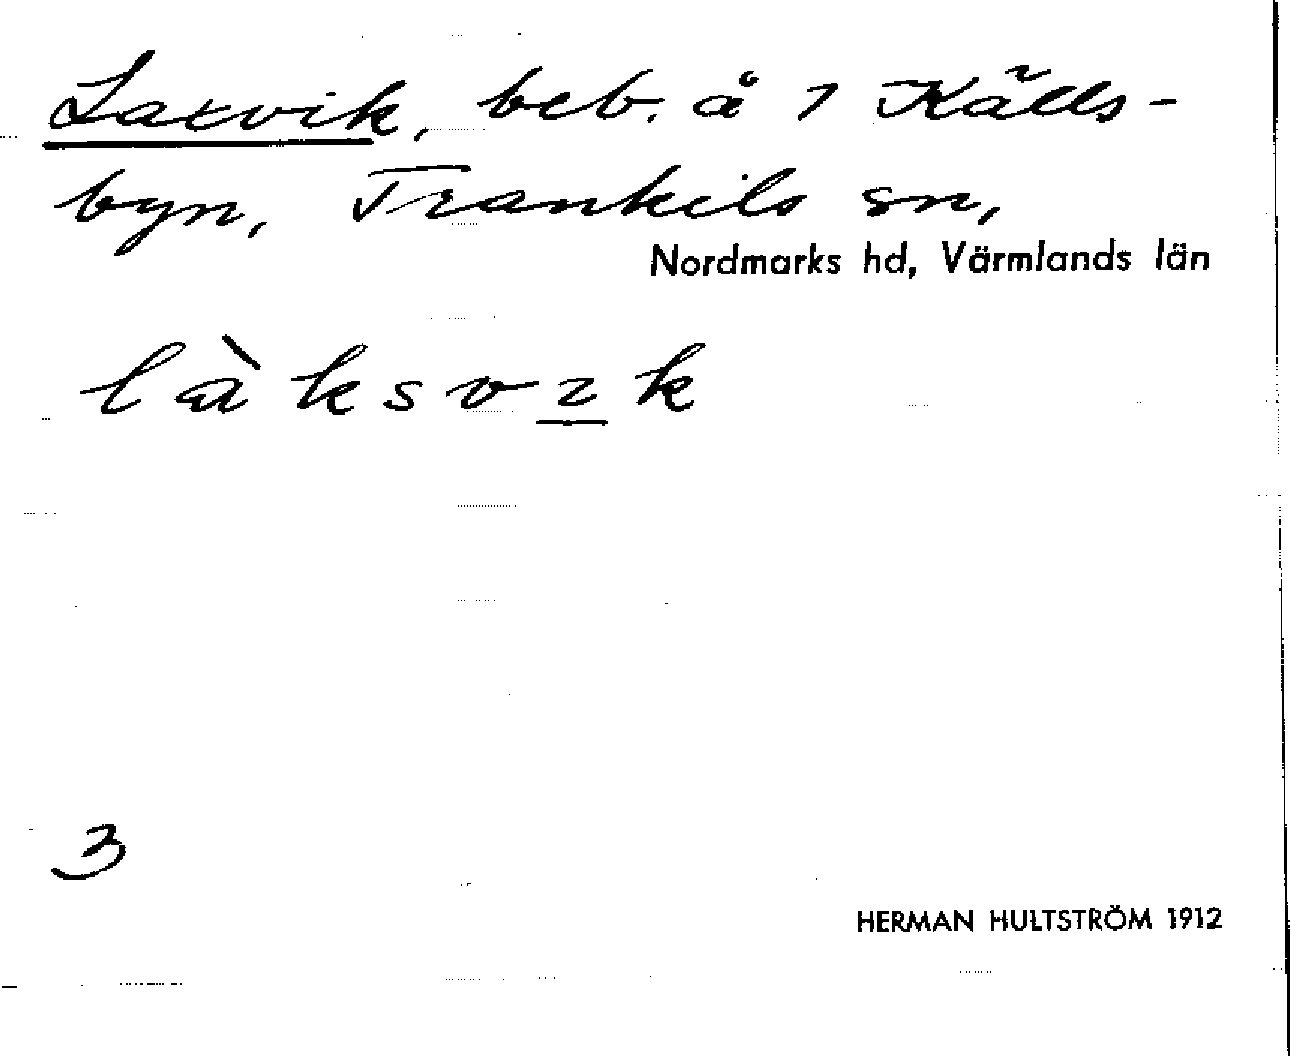 Laxvik, beb. å 1 Källs-
byn, Trankils sn,
Nordmarks hd, Värmlands län
làksvık
3
HERMAN HULTSTRÖM 1912